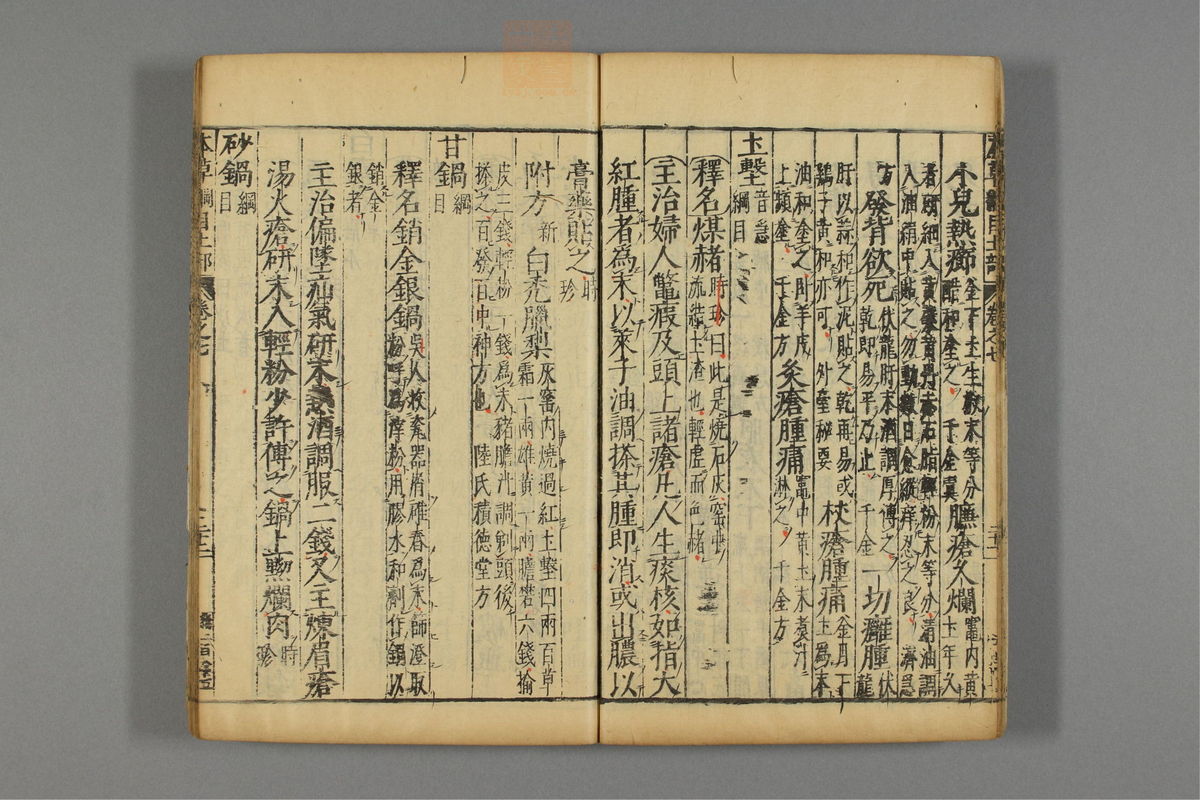 小兒熱癤 釜下土生椒末等分醋和塗之千金翼 臁瘡久爛 竈內黃土年久
者研細入黃蘗黃丹赤石脂輕粉末等分清油調
入油絹中貼之勿動數日愈縱痒忍之良濟急
方 發背欲死 伏龍肝末酒調厚傅之乾即易平乃止千金 一切癰腫 伏龍
肝以蒜和作泥貼之乾再易或雞子黃和亦可外臺秘要 杖瘡腫痛 釜月下土為末
油和塗之臥羊皮上頻塗千金方 灸瘡腫痛 竈中黃土末煮汁淋之千金方
土墼 音急 綱目
釋名 煤赭 時珍曰此是燒石灰窑中流結土渣也輕虛而色赭
主治婦人鱉瘕及頭上諸瘡凡人生痰核如指大
紅腫者為末以菜子油調搽其腫即消或出膿以
膏藥貼之 時珍
附方 新 白禿臘梨 灰窑內燒過紅土墼四兩百草霜一兩雄黃一兩膽礬六錢榆
皮三錢輕粉一錢為末豬膽汁調剃頭後搽之百發百中神方也 陸氏積德堂方
甘鍋 綱目
釋名銷金銀鍋 吳人收瓷器屑碓舂為末篩澄取粉呼為滓粉用膠水和劑作鍋以
銷金銀者
主治偏墜疝氣研末熱酒調服二錢又主煉眉瘡
湯火瘡研末入輕粉少許傅之鍋上黝爛肉 時珍
砂鍋 綱目
本草綱目土部 卷之七